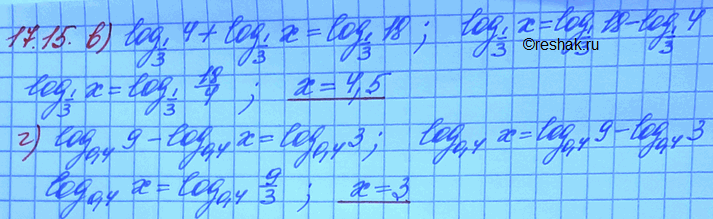 17.15. в) log_{1/3} 4 + log_{1/3} x = log_{1/3} 18 ; log_{1/3} x = log_{1/3} 18 - log_{1/3} 4
©reshak.ru
log_{1/3} x = log_{1/3} 18/4 ; x = 4,5
г) log_{0,4} 9 - log_{0,4} x = log_{0,4} 3 ; log_{0,4} x = log_{0,4} 9 - log_{0,4} 3
log_{0,4} x = log_{0,4} 9/3 ; x = 3